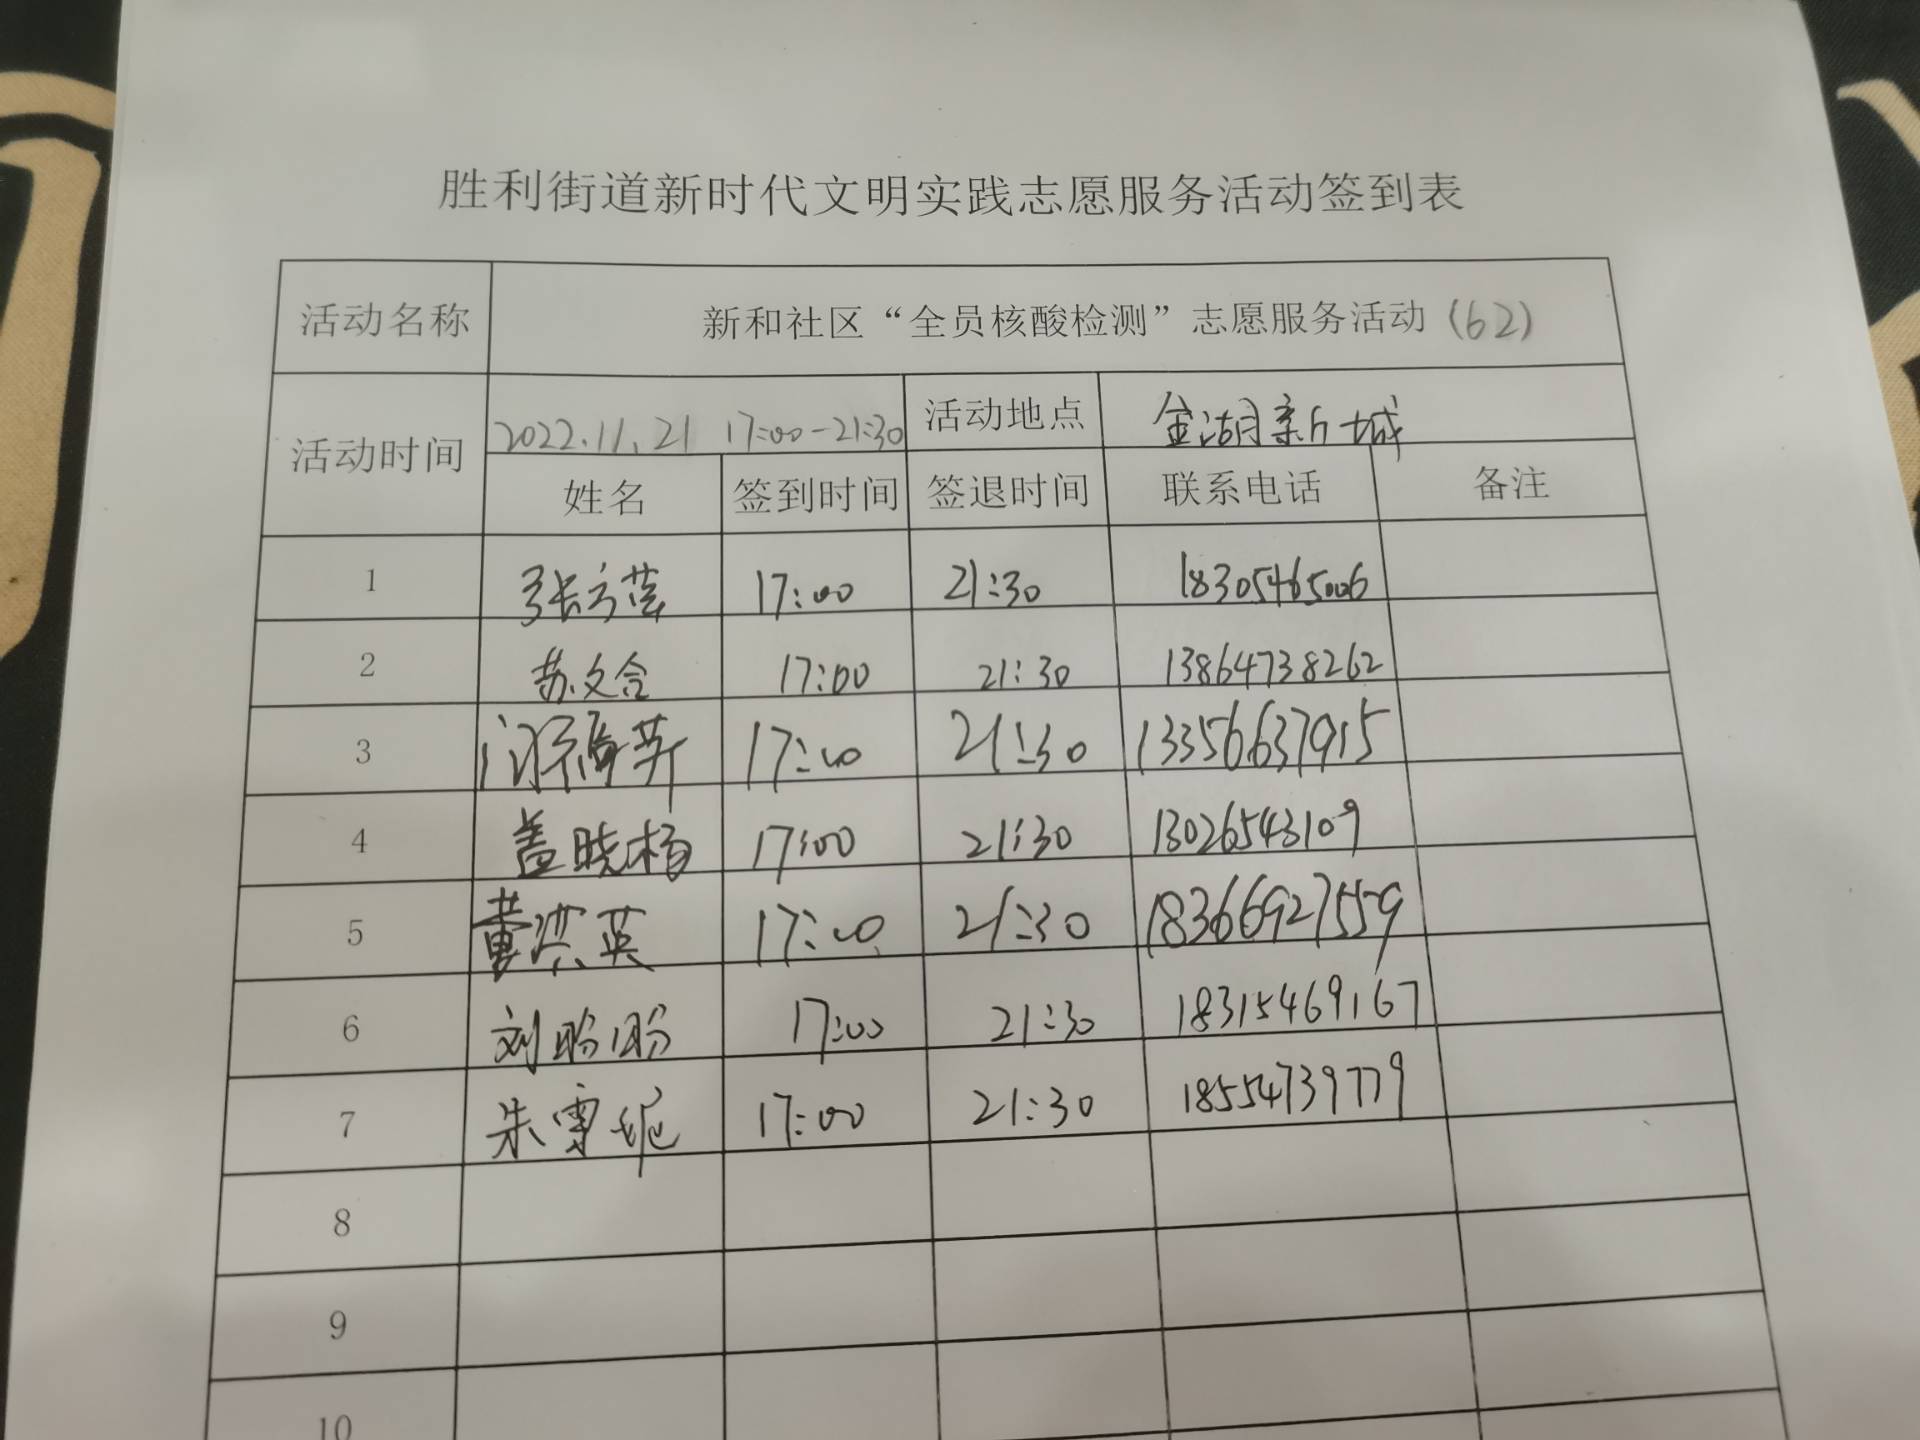 胜利街道新时代文明实践志愿服务活动签到表
活动名称 新和社区“全员核酸检测”志愿服务活动（62）
活动时间 2022.11.21 17:00-21:30 活动地点 金湖新城
姓名 签到时间 签退时间 联系电话 备注
1 张方莲 17:00 21:30 18305465006
2 苏文合 17:00 21:30 13864738262
3 17:00 21:30 13356637915
4 盖晓杨 17:00 21:30 13026543109
5 董洪英 17:00 21:30 18366927559
6 刘盼盼 17:00 21:30 18315469167
7 朱雪妮 17:00 21:30 18554739779
8
9
10